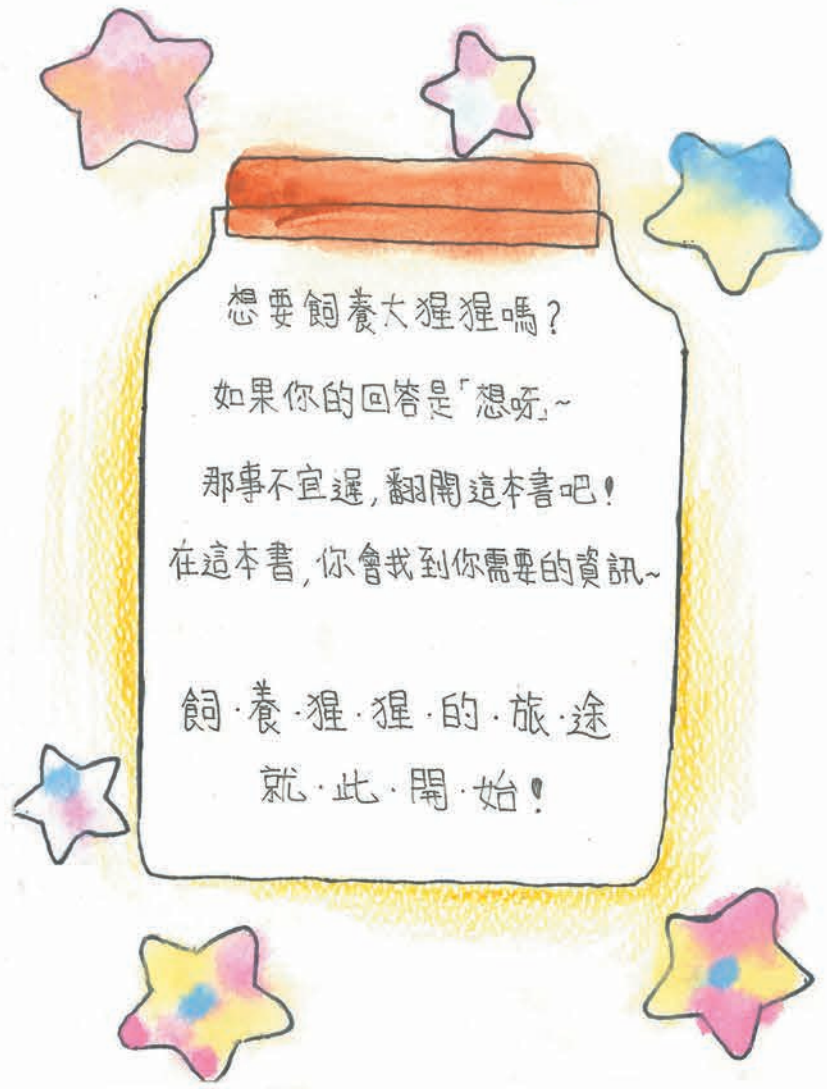 想要飼養大猩猩嗎？
如果你的回答是「想呀」~
那事不宜遲，翻開這本書吧！
在這本書，你會找到你需要的資訊~
飼·養·猩·猩·的·旅·途
就·此·開·始！